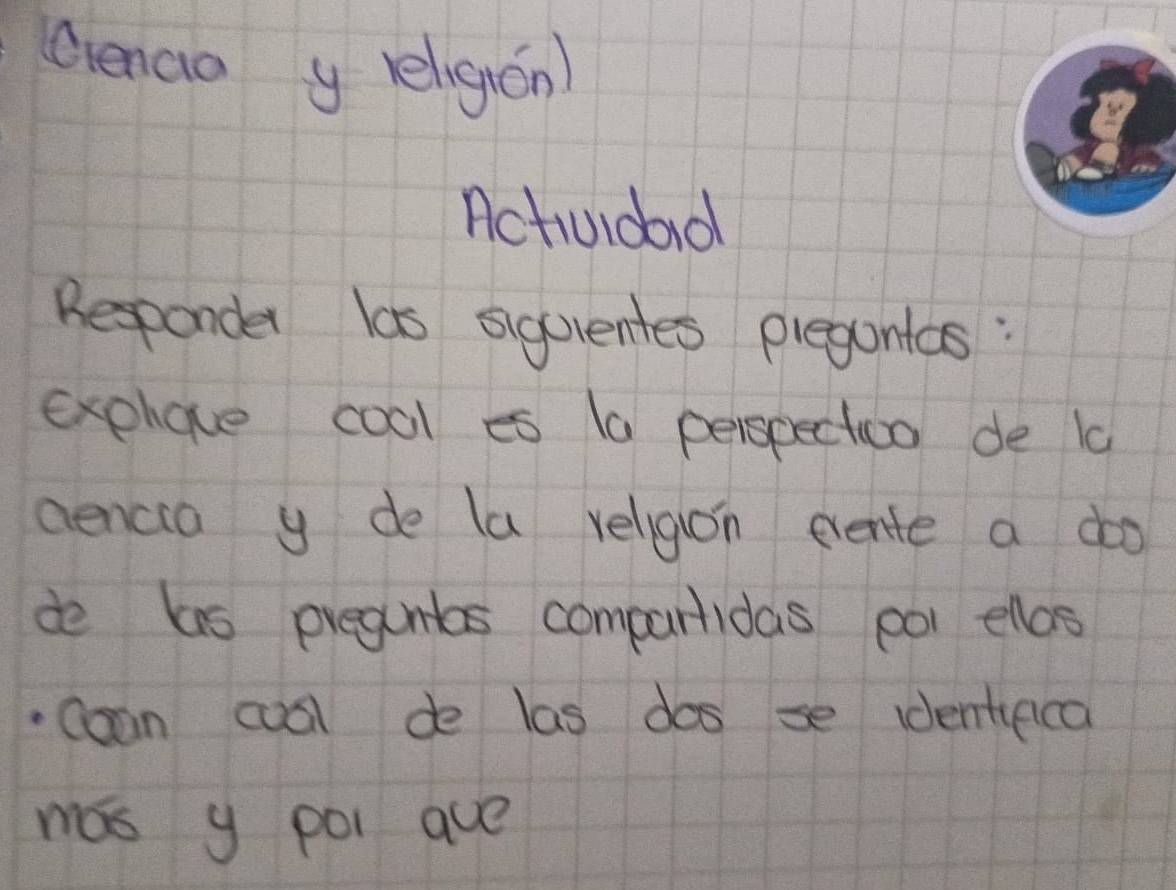 (Ciencia y religión)
Actividad
Responder las siguientes preguntas:
explique cual es la perspectiva de la
ciencia y de la religión frente a dos
de las preguntas compartidas por ellas
• Coon cual de las dos se identifica
más y por que